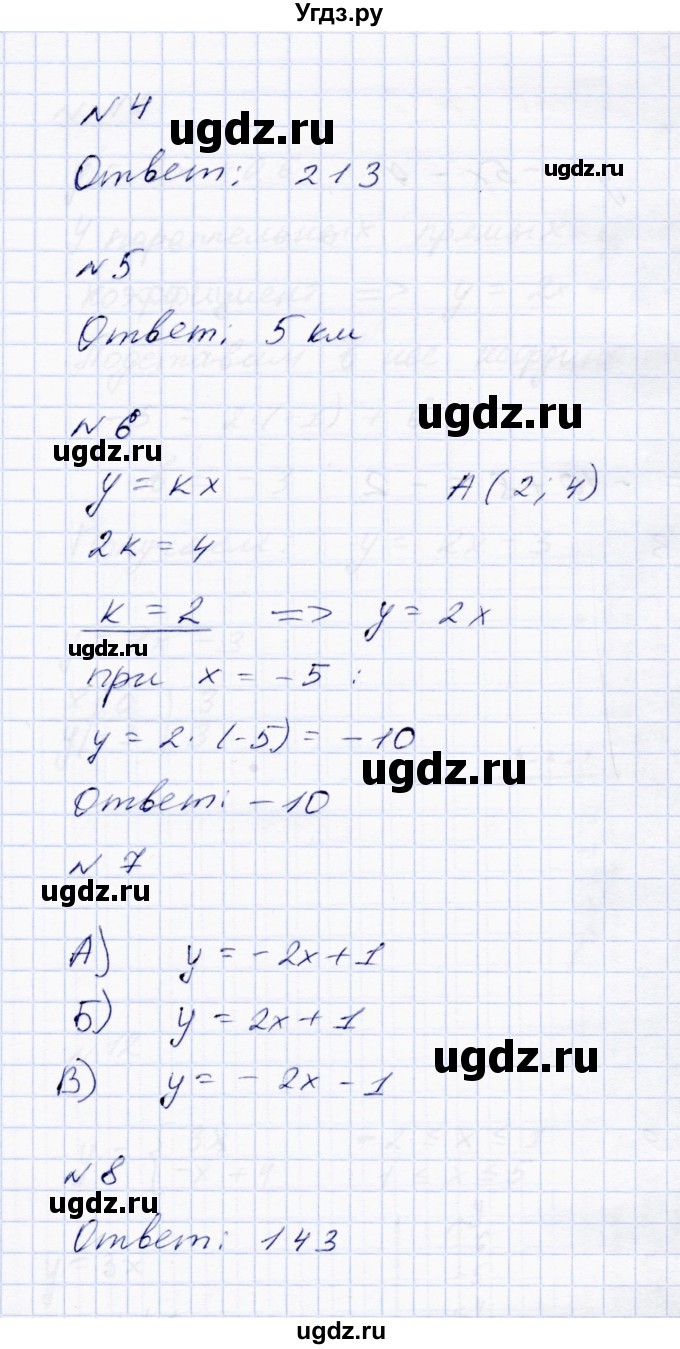 Угдз.ру
№ 4
ugdz.ru
Ответ: 213
ugdz.ru
№ 5
Ответ: 5 км
ugdz.ru
№ 6
ugdz.ru
y = kx A(2; 4)
2k = 4
k = 2 => y = 2x
ugdz.ru
при x = -5 :
y = 2 · (-5) = -10
ugdz.ru
Ответ: -10
№ 7
ugdz.ru
А) y = -2x + 1
Б) y = 2x + 1
ugdz.ru
В) y = -2x - 1
№ 8
ugdz.ru
Ответ: 143
ugdz.ru